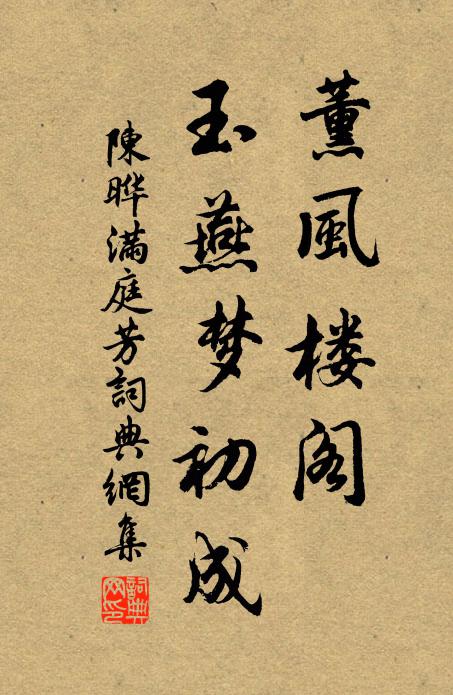 薰風楼阁
玉燕梦初成
陳晔满庭芳詞典網集
詞典网印